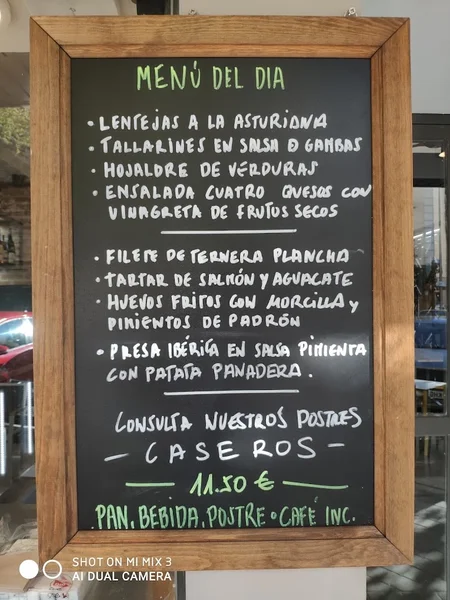 MENÚ DEL DIA
• LENTEJAS A LA ASTURIANA
• TALLARINES EN SALSA D GAMBAS
• HOJALDRE DE VERDURAS
• ENSALADA CUATRO QUESOS CON
VINAGRETA DE FRUTOS SECOS
• FILETE DE TERNERA PLANCHA
• TARTAR DE SALMÓN Y AGUACATE
• HUEVOS FRITOS CON MORCILLA Y
PIMIENTOS DE PADRÓN
• PRESA IBÉRICA EN SALSA PIMIENTA
CON PATATA PANADERA.
CONSULTA NUESTROS POSTRES
- CASEROS -
— 11.50 € —
PAN, BEBIDA, POSTRE o CAFÉ INC.
SHOT ON MI MIX 3
AI DUAL CAMERA